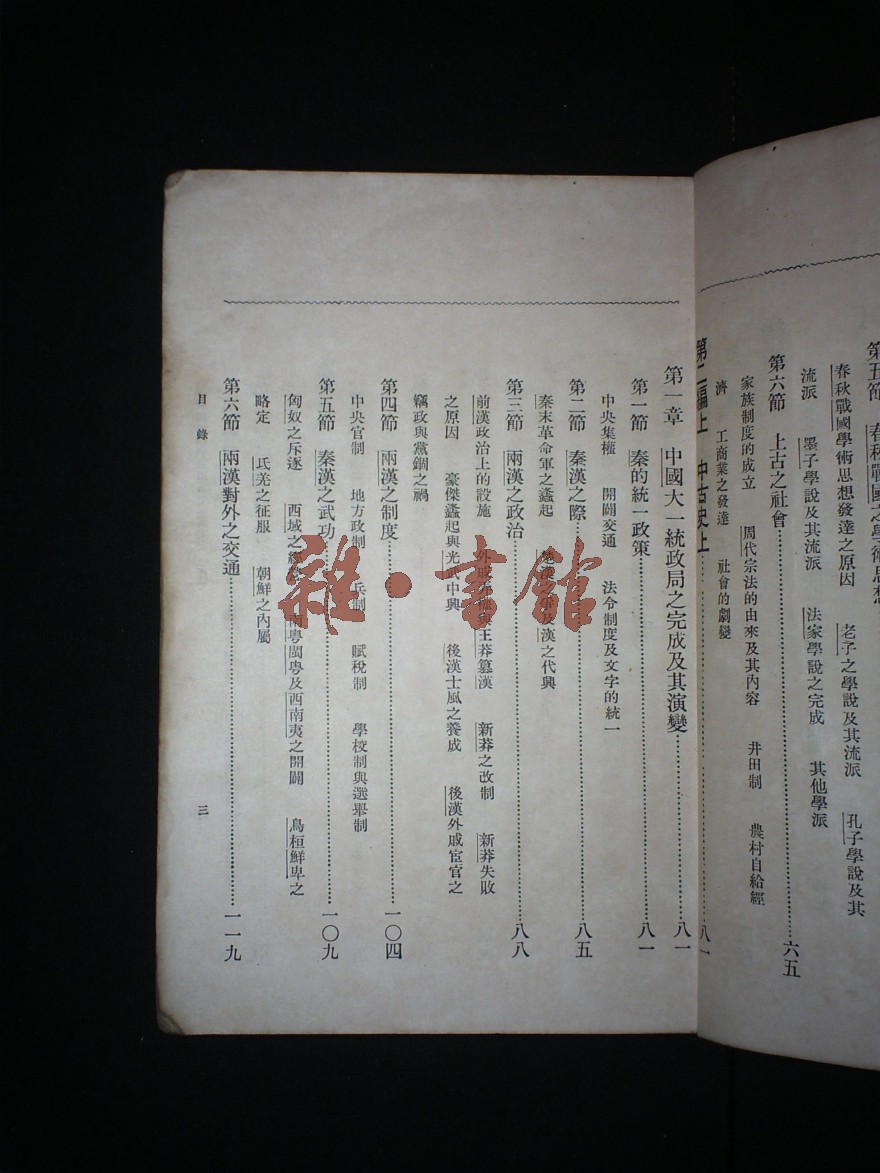 第五節　春秋戰國之學術思想
春秋戰國學術思想發達之原因　老子之學說及其流派　孔子學說及其
流派　墨子學說及其流派　法家學說之完成　其他學派
第六節　上古之社會……六五
家族制度的成立　周代宗法的由來及其內容　井田制　農村自給經
濟　工商業之發達　社會的劇變
第二編上　中古史上……八一
第一章　中國大一統政局之完成及其演變……八一
第一節　秦的統一政策……八一
中央集權　開闢交通　法令制度及文字的統一
第二節　秦漢之際……八五
秦末革命軍之蠭起　及漢之代興
第三節　兩漢之政治……八八
前漢政治上的設施　外戚　王莽篡漢　新莽之改制　新莽失敗
之原因　豪傑蠭起與光武中興　後漢士風之養成　後漢外戚宦官之
竊政與黨錮之禍
第四節　兩漢之制度……一〇四
中央官制　地方政制　兵制　賦稅制　學校制與選舉制
第五節　秦漢之武功……一〇九
匈奴之斥逐　西域之　南粵閩粵及西南夷之開闢　烏桓鮮卑之
略定　氐羌之征服　朝鮮之內屬
第六節　兩漢對外之交通……一一九
目錄　三
雜·書館